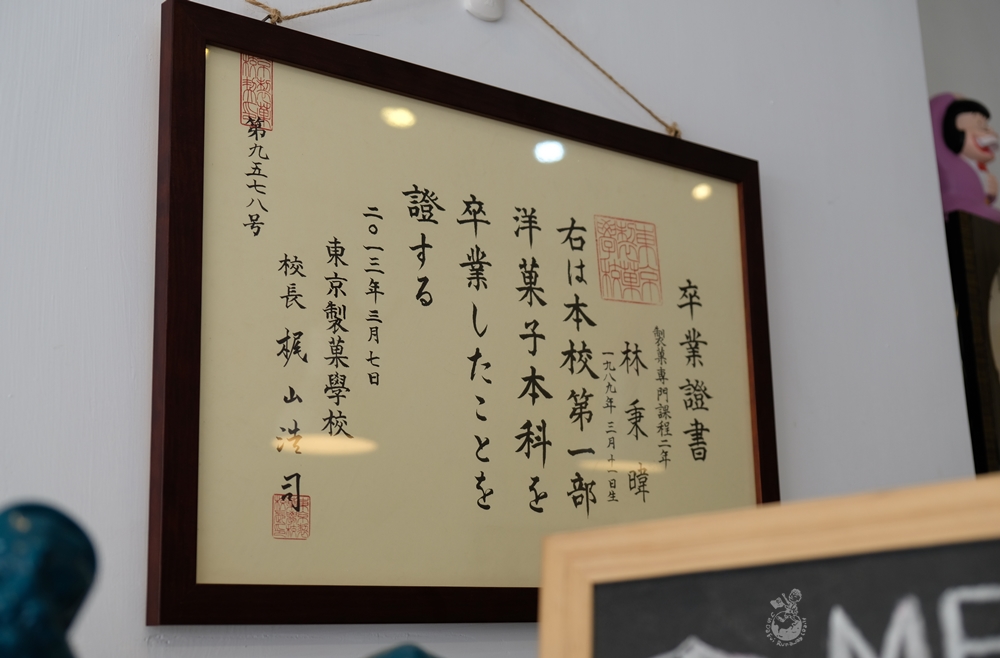 卒業證書
製菓専門課程二年
林秉暐
一九八九年三月十一日生
右は本校第一部
洋菓子本科を
卒業したことを
證する
二〇一三年三月七日
東京製菓學校
校長 梶山浩司
第九五七八号
ME